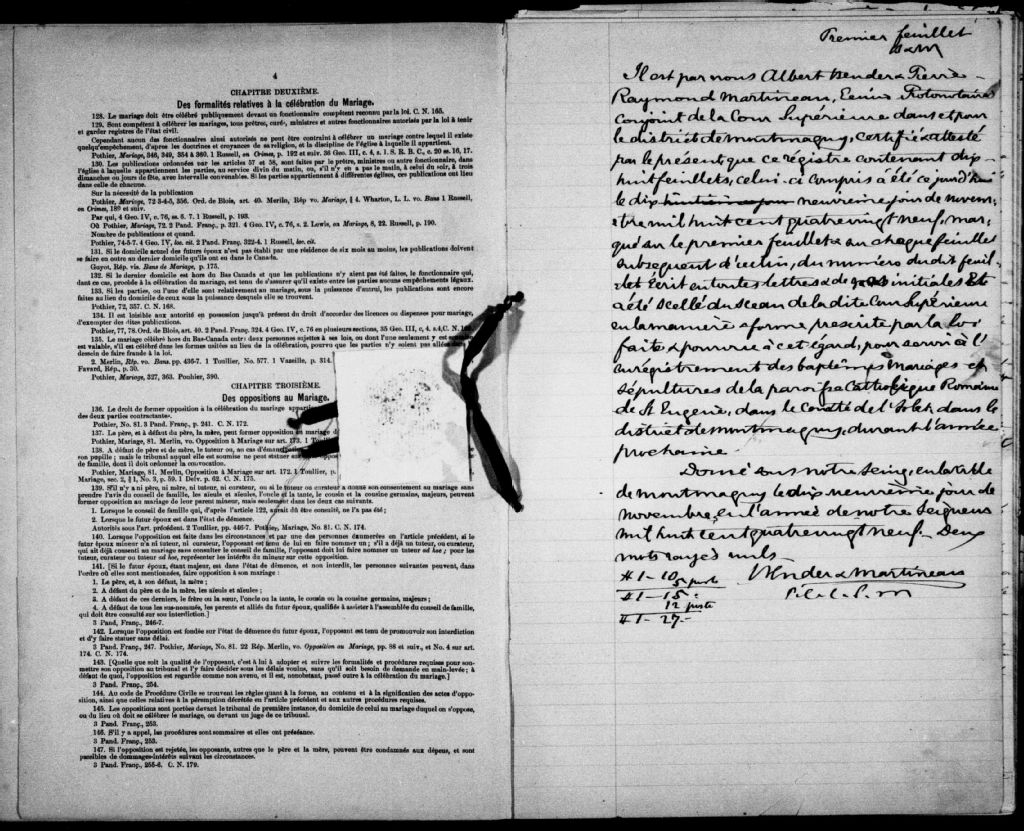 4
CHAPITRE DEUXIÈME.
Des formalités relatives à la célébration du Mariage.
128. Le mariage doit être célébré publiquement devant un fonctionnaire compétent reconnu par la loi. C. N. 165.
129. Sont compétent à célébrer les mariages, tous prêtres, curé-, ministres et autres fonctionnaires autorisés par la loi à tenir
et garder registres de l'état civil.
Cependant aucun des fonctionnaires ainsi autorisés ne peut être contraint à célébrer un mariage contre lequel il existe
quelqu'empêchement, d'après les doctrines et croyances de sa religion, et la discipline de l'église à laquelle il appartient.
Pothier, Mariage, 346, 349, 354 à 360. 1 Russell, on Crimes, p. 192 et suiv. 36 Geo. III, c. 4, s. 1. S. R. B. C., c. 20 ss. 16, 17.
130. Les publications ordonnées par les articles 57 et 58, sont faites par le prêtre, ministre ou autre fonctionnaire, dans
l'église à laquelle appartiennent les parties, au service divin du matin, ou, s'il n'y en a pas le matin, à celui du soir, à trois
dimanches ou jours de fête, avec intervalle convenable. Si les parties appartiennent à différentes églises, ces publications ont lieu
dans celle de chacune.
Sur la nécessité de la publication
Pothier, Mariage, 72-3-4-5, 356. Ord. de Blois, art. 40. Merlin, Rép vo. Mariage, § 4. Wharton, L. L. vo. Bans 1 Russell,
on Crimes, 189 et suiv.
Par qui, 4 Geo. IV, c. 76, ss. 6. 7. 1 Russell, p. 193.
Où Pothier, Mariage, 72. 2 Pand. Franç., p. 321. 4 Geo. IV, c. 76, s. 2. Lewis, on Mariage, 8, 22. Russell, p. 190.
Nombre de publications et quand.
Pothier, 74-5-7. 4 Geo. IV, loc. cit. 2 Pand. Franç. 322-4. 1 Russell, loc. cit.
131. Si le domicile actuel des futurs époux n'est pas établi par une résidence de six mois au moins, les publications doivent
se faire en outre au dernier domicile qu'ils ont eu dans le Canada.
Guyot, Rép. vis. Bans de Mariage, p. 175.
132. Si le dernier domicile est hors du Bas Canada et que les publications n'y aient pas été faites, le fonctionnaire qui,
dans ce cas, procède à la célébration du mariage, est tenu de s'assurer qu'il existe entre les parties aucuns empêchements légaux.
133. Si les parties, ou l'une d'elle sont relativement au mariage, sous la puissance d'autrui, les publications sont encore
faites au lieu du domicile de ceux sous la puissance desquels elle se trouvent.
Pothier, 72, 357. C. N. 168.
134. Il est loisible aux autorité en possession jusqu'à présent du droit d'accorder des licences ou dispenses pour mariage,
d'exempter des dites publications.
Pothier, 77, 78. Ord. de Blois, art. 40. 2 Pand. Franç. 324. 4 Geo. IV, c. 76 en plusieurs sections, 35 Geo. III, c. 4, s 4, C. N.
135. Le mariage célébré hors du Bas-Canada entre deux personnes sujettes à ses lois, ou dont l'une seulement y est
est valable, s'il est célébré dans les formes usitées au lieu de la célébration, pourvu que les parties n'y soient pas allées
dessein de faire fraude à la loi.
2. Merlin, Rép. vo. Bans. pp. 436-7. 1 Toullier, No. 577. 1 Vazeille, p. 314.
Favard, Rép., p. 30.
Pothier, Mariage, 327, 363. Pouhier, 390.
CHAPITRE TROISIÈME.
Des oppositions au Mariage.
136. Le droit de former opposition à la célébration du mariage
des deux parties contractantes.
Pothier, No. 81. 3 Pand. Franç., p. 241. C. N. 172.
137. Le père, et à défaut du père, la mère, peut former opposition au mariage
Pothier, Mariage, 81. Merlin, vo. Opposition à Mariage sur art. 173. 1
138. A défaut de père et de mère, le tuteur ou, au cas
son pupille ; mais le tribunal auquel elle est soumise ne peut statuer
de famille, dont il doit ordonner la convocation.
Pothier, Mariage, 81. Merlin, Opposition à Mariage sur art. 172. 1 Toullier, p.
Mariage, sec. 2, § 1, No. 3, p. 59. 1 Delv. p. 62. C. N. 175.
139. S'il n'y a ni père, ni mère, ni tuteur, ni curateur, ou si le tuteur ou curateur a donné son consentement au mariage sans
prendre l'avis du conseil de famille, les aïeuls et aïeules, l'oncle et la tante, le cousin et la cousine germains, majeurs, peuvent
former opposition au mariage de leur parent mineur, mais seulement dans les deux cas suivants.
1. Lorsque le conseil de famille qui, d'après l'article 122, aurait dû être consulté, ne l'a pas été ;
2. Lorsque le futur époux est dans l'état de démence.
Autorités sous l'art. précédent. 2 Toullier, pp. 446-7. Pothier, Mariage, No. 81. C. N. 174.
140. Lorsque l'opposition est faite dans les circonstances et par une des personnes énumérées en l'article précédent, si le
futur époux mineur n'a ni tuteur, ni curateur, l'opposant est tenu de lui en faire nommer un ; s'il a déjà un tuteur, ou curateur,
qui ait déjà consenti au mariage sans consulter le conseil de famille, l'opposant doit lui faire nommer un tuteur ad hoc ; pour les
tuteur, curateur ou tuteur ad hoc, représenter les intérêts du mineur sur cette opposition.
141. [Si le futur époux, étant majeur, est dans l'état de démence, et non interdit, les personnes suivantes peuvent, dans
l'ordre où elles sont mentionnées, faire opposition à son mariage :
1. Le père, et, à son défaut, la mère ;
2. A défaut du père et de la mère, les aïeuls et aïeules ;
3. A défaut de ces derniers, le frère ou la sœur, l'oncle ou la tante, le cousin ou la cousine germains, majeurs ;
4. A défaut de tous les sus-nommés, les parents et alliés du futur époux, qualifiés à assister à l'assemblée du conseil de famille,
qui doit être consulté sur son interdiction.]
3 Pand. Franç., 246-7.
142. Lorsque l'opposition est fondée sur l'état de démence du futur époux, l'opposant est tenu de promouvoir son interdiction
et d'y faire statuer sans délai.
3 Pand. Franç., 247. Pothier, Mariage, No. 81. 22 Rép. Merlin, vo. Opposition au Mariage, pp. 88 et suiv., et No. 4 sur art.
174. C. N. 174.
143. [Quelque soit la qualité de l'opposant, c'est à lui à adopter et suivre les formalités et procédures requises pour sou-
mettre son opposition au tribunal et l'y faire décider sous les délais voulus, sans qu'il soit besoin de demande en main-levée ; à
défaut de quoi, l'opposition est regardée comme non avenu, et il est, nonobstant, passé outre à la célébration du mariage.]
3 Pand. Franç., 254.
144. Au code de Procédure Civile se trouvent les règles quant à la forme, au contenu et à la signification des actes d'oppo-
sition, ainsi que celles relatives à la péremption décrétée en l'article précédent et aux autres procédures requises.
145. Les oppositions sont portées devant le tribunal de première instance, du domicile de celui au mariage duquel on s'oppose,
ou du lieu où doit se célébrer le mariage, ou devant un juge de ce tribunal.
3 Pand. Franç., 253.
146. S'il y a appel, les procédures sont sommaires et elles ont préséance.
3 Pand. Franç., 253.
147. Si l'opposition est rejetée, les opposants, autres que le père et la mère, peuvent être condamnés aux dépens, et sont
passibles de dommages-intérêts suivant les circonstances.
3 Pand. Franç., 255-6. C. N. 179.
Premier feuillet
B & M
Il est par nous Albert Bender & Pierre
Raymond Martineau, Ecuiers Protonotaire
Conjoint de la Cour Supérieure dans et pour
le district de Montmagny, certifié & attesté
par le présent que ce régistre contenant dix-
huit feuillets, celui-ci compris a été ce jourd'hui
le dix huitième jour neuvième jour de novem-
bre mil huit cent quatre vingt neuf, mar-
qué sur le premier feuillet & sur chaque feuillet
subséquent d'icelui, du numéro du dit feuil-
let écrit en toutes lettres & de nos initiales Et
a été scellé du sceau de la dite Cour Supérieure
en la manière & forme prescrite par la loi
faite & pourvue à cet égard, pour servir à l'
enrégistrement des baptêmes mariages et
sépultures de la paroisse Catholique Romaine
de St Eugène, dans le Comté de l'Islet dans le
district de Montmagny, durant l'année
prochaine.
Donné sous notre seing, en la ville
de Montmagny le dix neuvième jour de
novembre, en l'année de notre Seigneur
mil huit cent quatre vingt neuf. Deux
mots rayés nuls
# 1-10 Bender & Martineau
5 poste
# 1-15 P. C. S. M
12 poste
# 1-27-